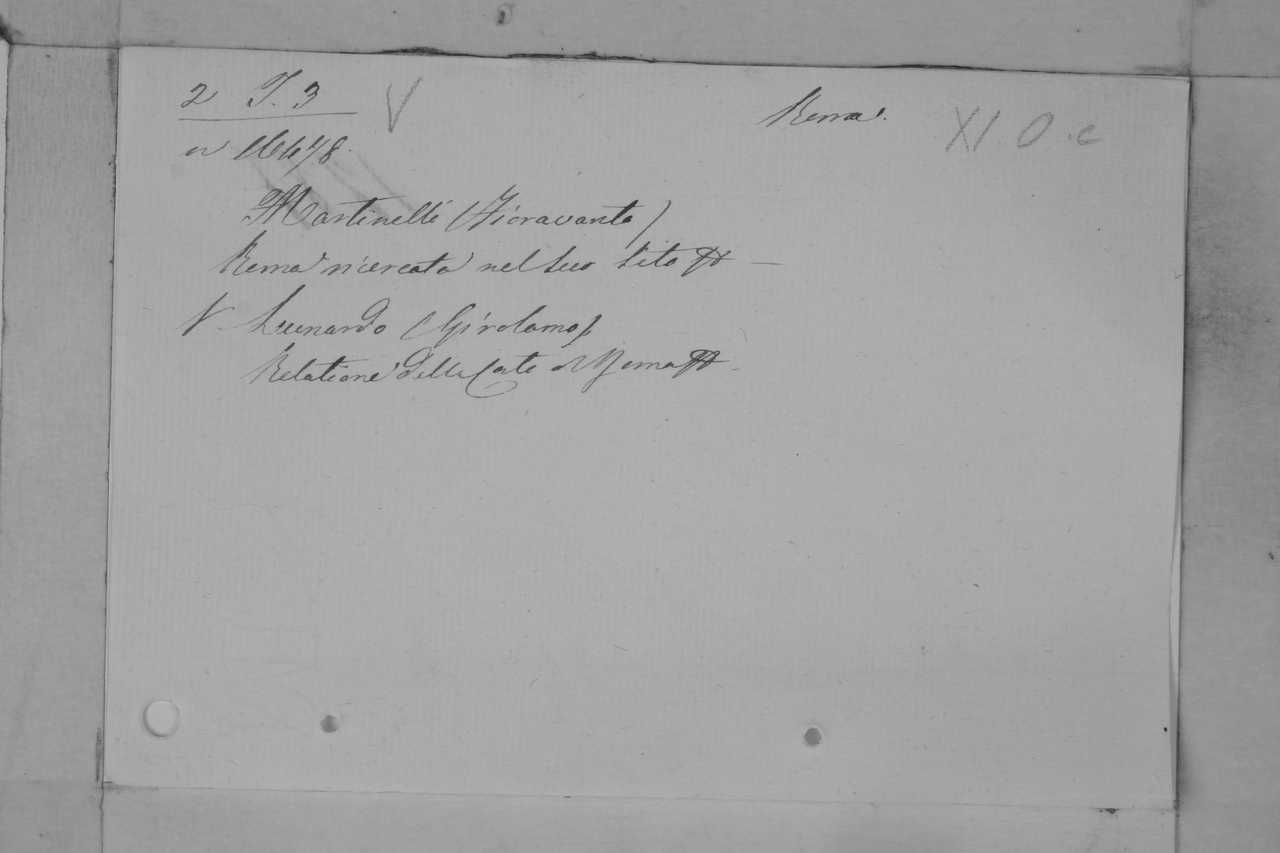 2 T. 3 V Roma. XI. O. c
16478.
Martinelli (Fioravante)
Roma ricercata nel suo sito
V Lunardo (Girolamo)
Relatione della Corte di Roma